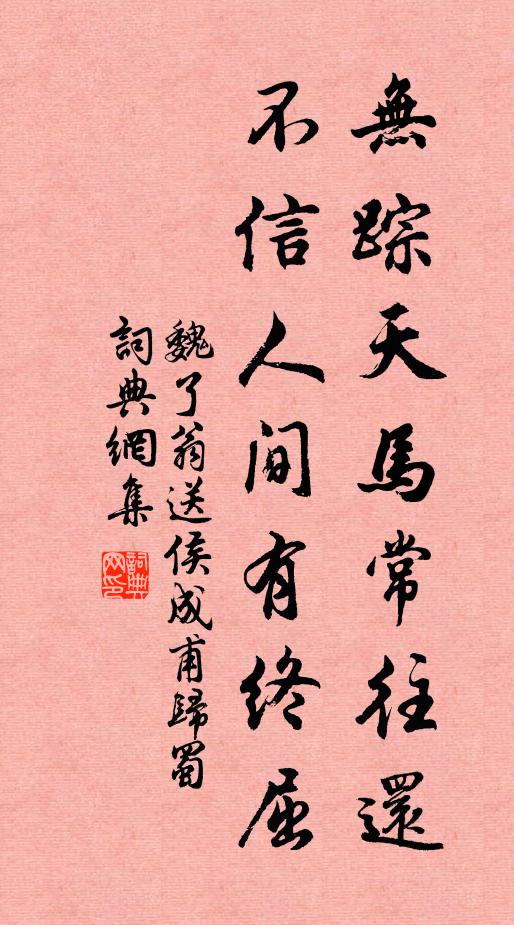 無踪天馬常往還
不信人間有終屈
魏了翁送侯成甫歸蜀
詞典網集
詞典网印